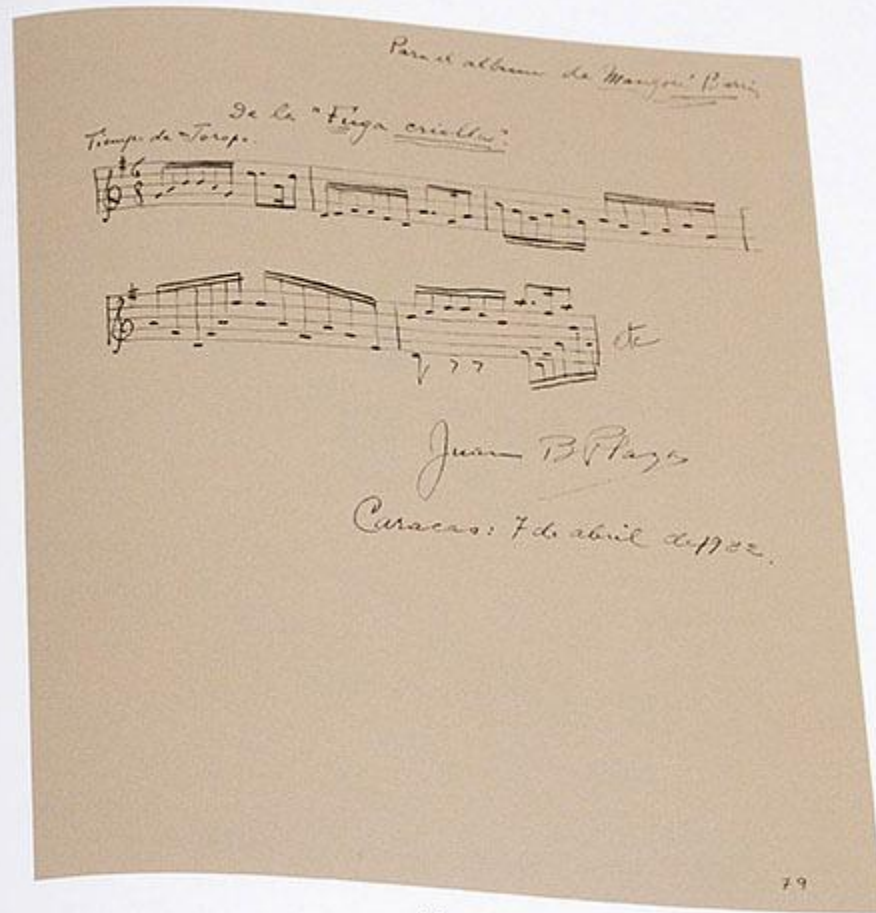 Para el album de Mangoré Barrios
De la "Fuga criolla".
Tiempo de Joropo.
6
8
etc
Juan B Plaza
Caracas: 7 de abril de 1932.
79